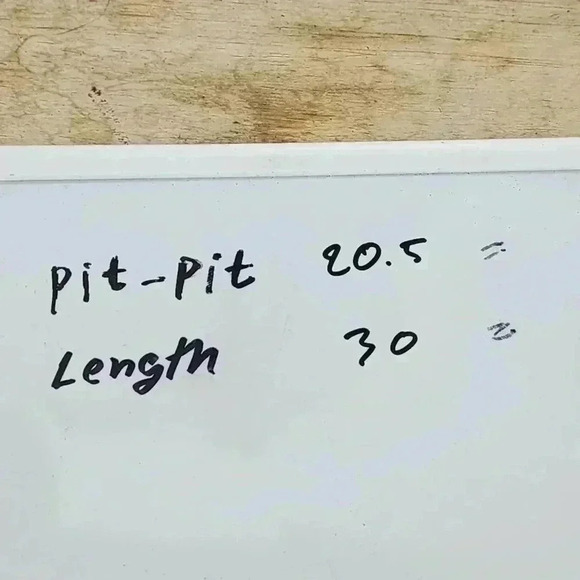 Pit-Pit 20.5 "
Length 30 "